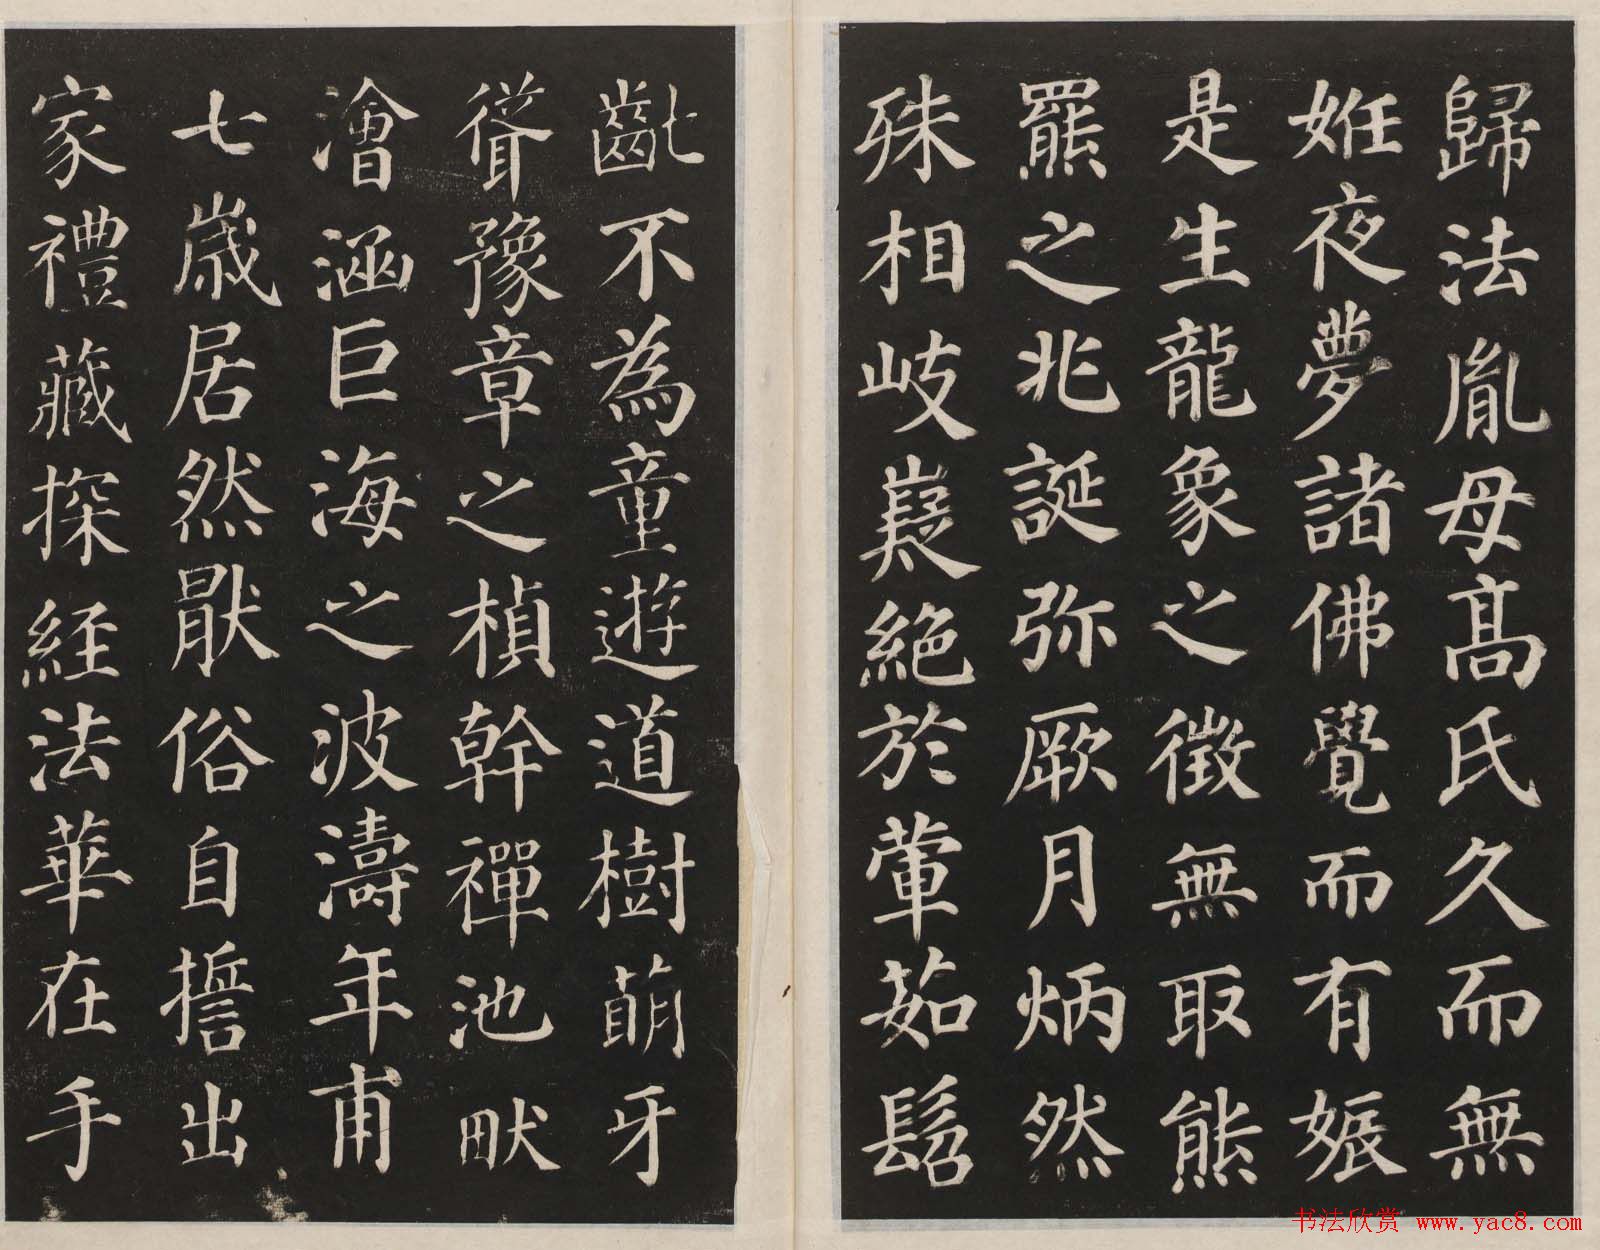 歸法胤母髙氏久而無
姙夜夢諸佛覺而有娠
是生龍象之徵無取熊
羆之兆誕弥厥月炳然
殊相岐嶷絕於葷茹髫
齔不為童遊道樹萌牙
聳豫章之楨幹禪池畎
澮涵巨海之波濤年甫
七歲居然猒俗自誓出
家禮藏探經法華在手
书法欣赏 www.yac8.com